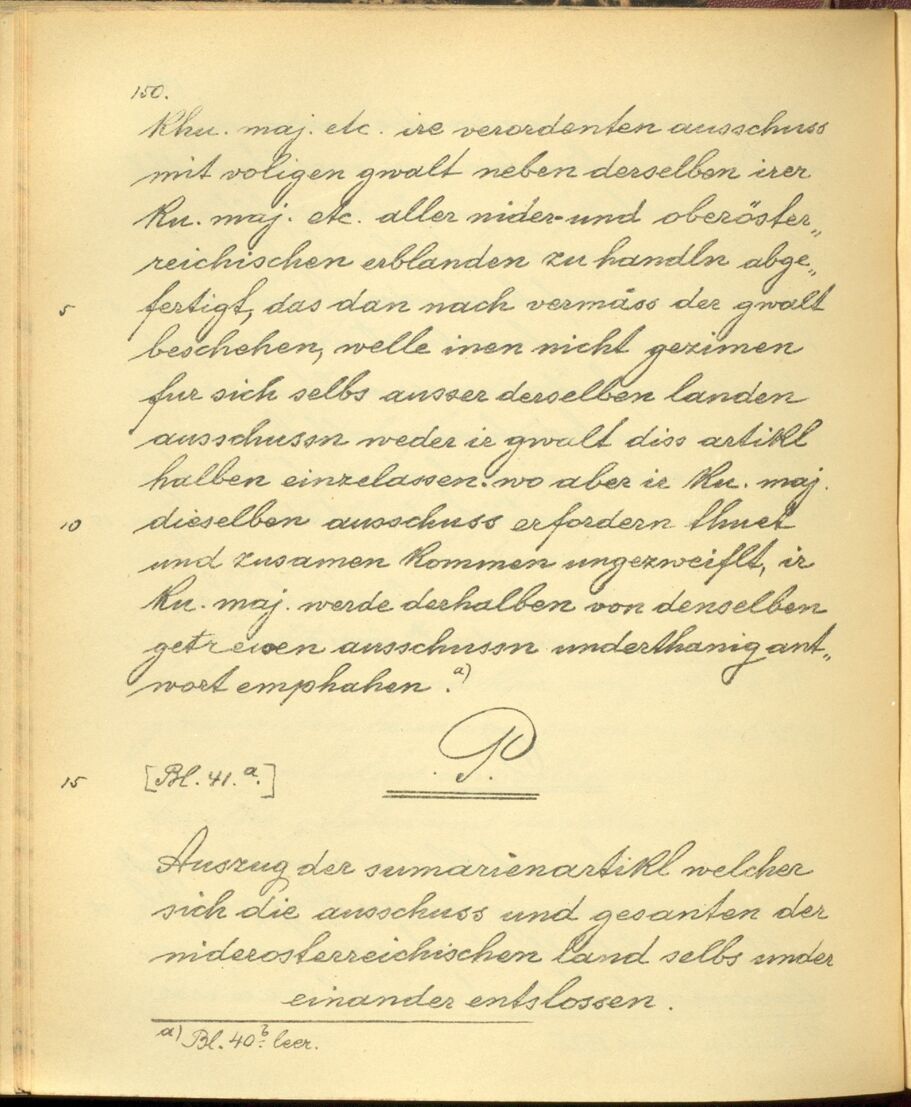 150.
Khu. maj. etc. ire verordenten ausschuss
mit voligen gwalt neben derselben irer
Ku. maj. etc. aller nider- und oberöster„
reichischen erblanden zu handln abge„
5 fertigt, das dan nach vermäss der gwalt
beschehen, welle inen nicht gezimen
fur sich selbs ausser derselben landen
ausschussn weder ir gwalt diss artikl
halben einzelassen. wo aber ir Ku. maj.
10 dieselben ausschuss erfordern thuet
und zusamen kommen ungezweiflt, ir
Ku. maj. werde derhalben von denselben
getrewen ausschussn underthanig ant„
wort emphahen. a)
P.
15 [Bl. 41. a.]
Auszug der sumarienartikl welcher
sich die ausschuss und gesanten der
niderosterreichischen land selbs under
einander entslossen.
a) Bl. 40 b. leer.